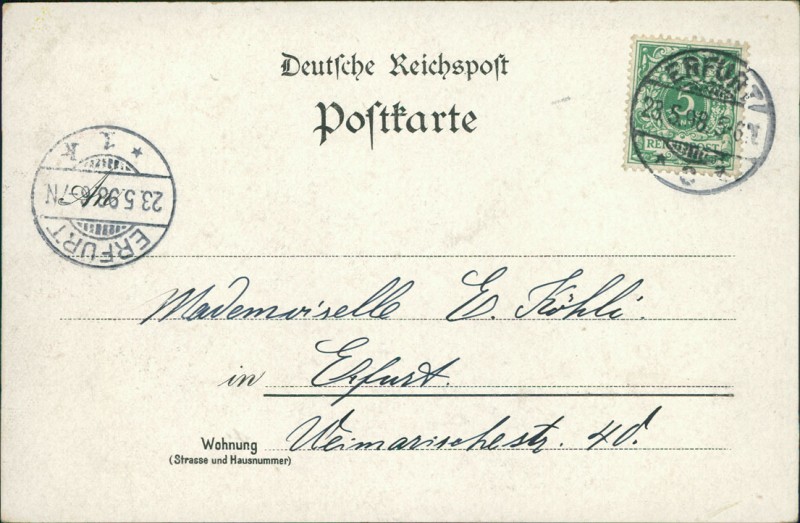 Deutsche Reichspost
Postkarte
5
REICHSPOST
ERFURT
23.5.98.5-6N.
* C 1
* 1 k
23.5.98.6-7N
ERFURT
An
Mademoiselle E. Köhli.
in Erfurt.
Wohnung Weimarischestr. 40.
(Strasse und Hausnummer)